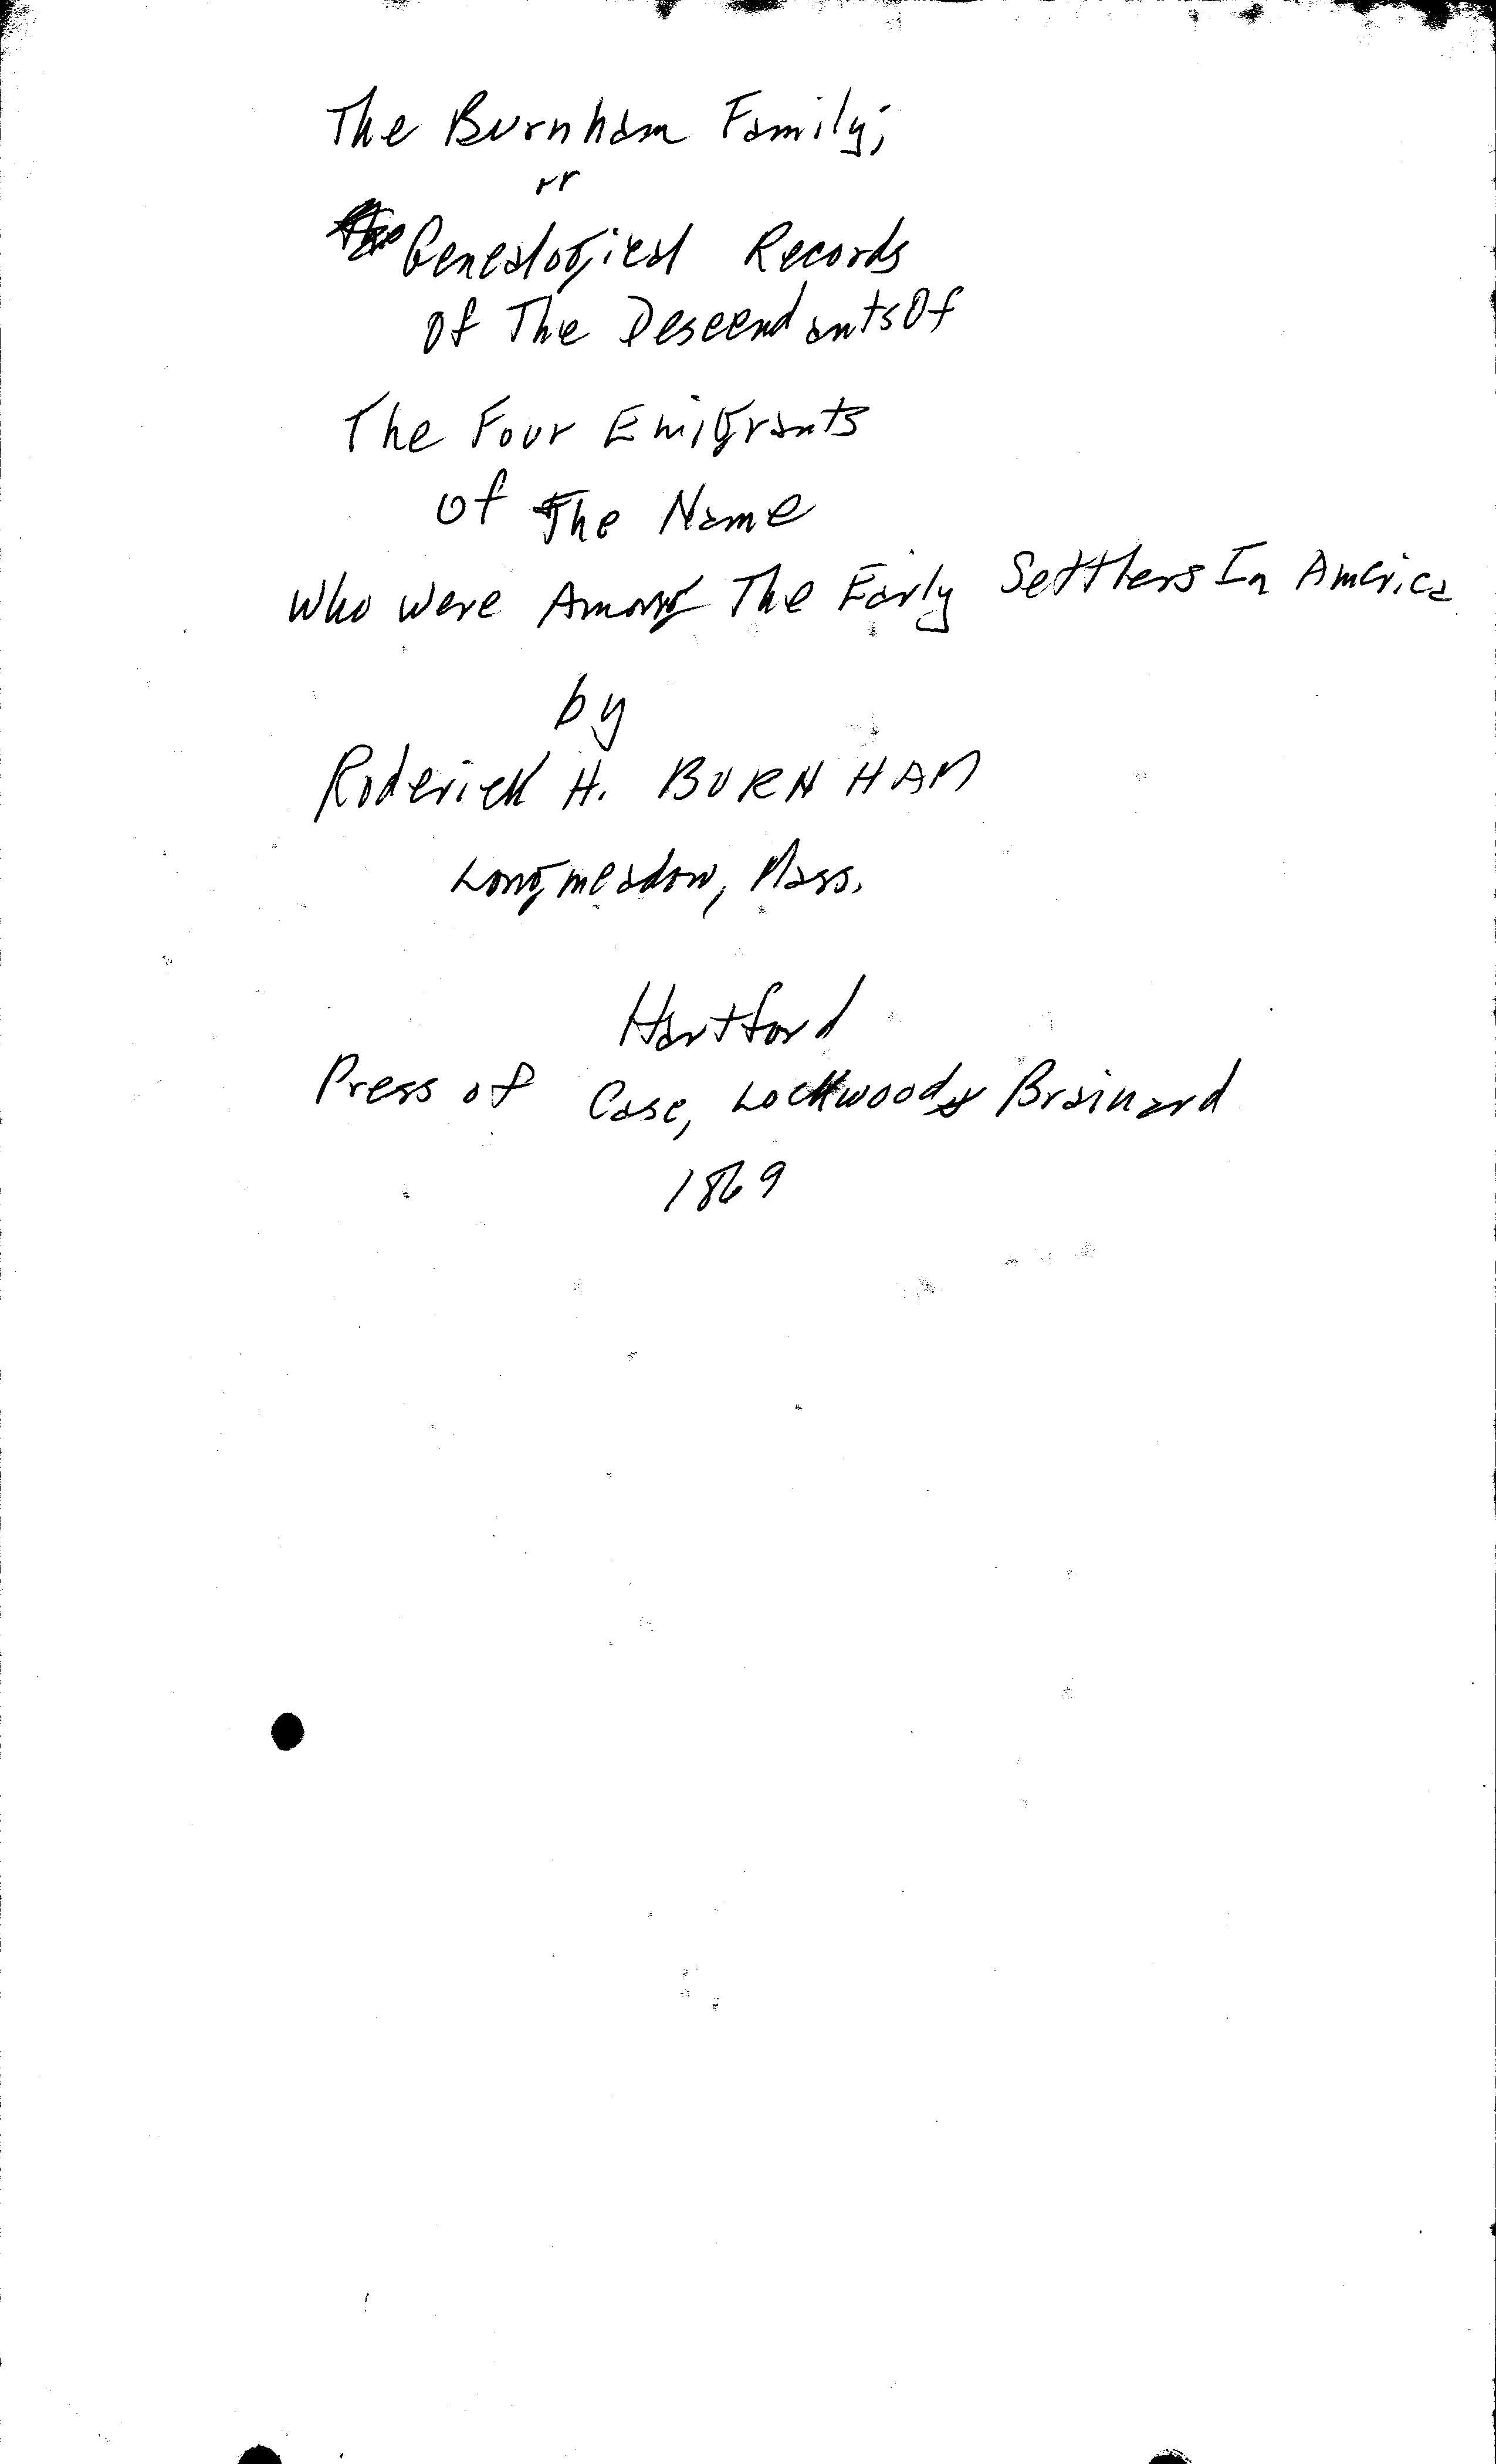 The Burnham Family;
or
Genealogical Records
Of The Descendants Of
The Four Emigrants
Of The Name
Who Were Among The Early Settlers In America
by
Roderick H. BURNHAM
Longmeadow, Mass.
Hartford
Press of Case, Lockwood & Brainard
1869